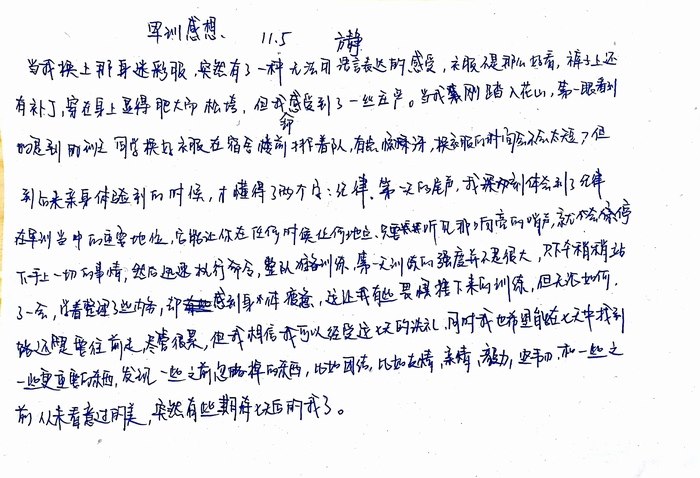 军训感想、 11.5 方静
当我换上那身迷彩服,突然有了一种无法用语言表达的感受,衣服不是那么好看,裤子上还
有补丁,穿在身上显得肥大而松垮,但我感受到了一些庄严。当我刚踏入花山,第一眼看到
的是到的同学换好衣服在宿舍楼前排着队,有些,换衣服的时间会不会太短?但
到后来亲身体验到的时候,才懂得了两个字:纪律。第一次的哨声,我深刻体会到了纪律
在军训当中的重要地位,它能让你在任何时候任何地点,只要听见那响亮的哨声,就不会停
下手上一切的事情,然后迅速执行命令,整队训练,第一天训练的强度并不是很大,只下午稍稍站
了一会,学着整理了些内务,却感到身体疲惫,这让我有些畏惧接下来的训练,但无论如何,
路还是要往前走,尽管很累,但我相信我可以经受这七天的洗礼,同时我也希望自己能在七天中找到
一些更重要的东西,发现一些之前忽略掉的东西,比如团结,比如友情,亲情,毅力,坚韧,和一些之
前从未看意过的美,突然有些期待七天后的我了。